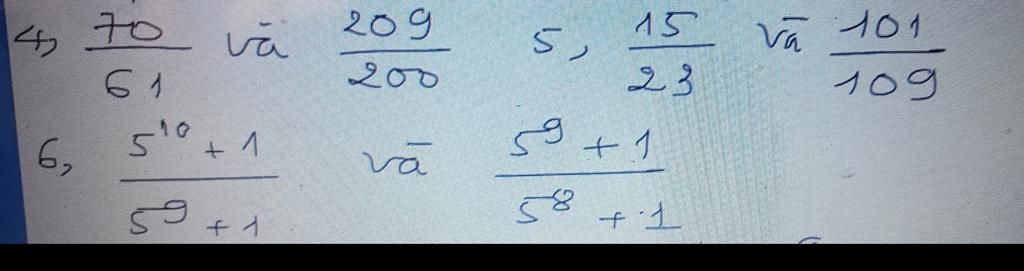 4, 70/61 và 209/200 5, 15/23 và 101/109
6, (5^10 + 1)/(5^9 + 1) và (5^9 + 1)/(5^8 + 1)